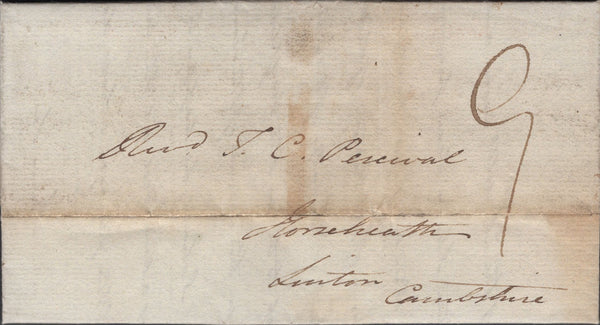 9
Revd T. C. Percival
Horseheath
Linton
Cambshire